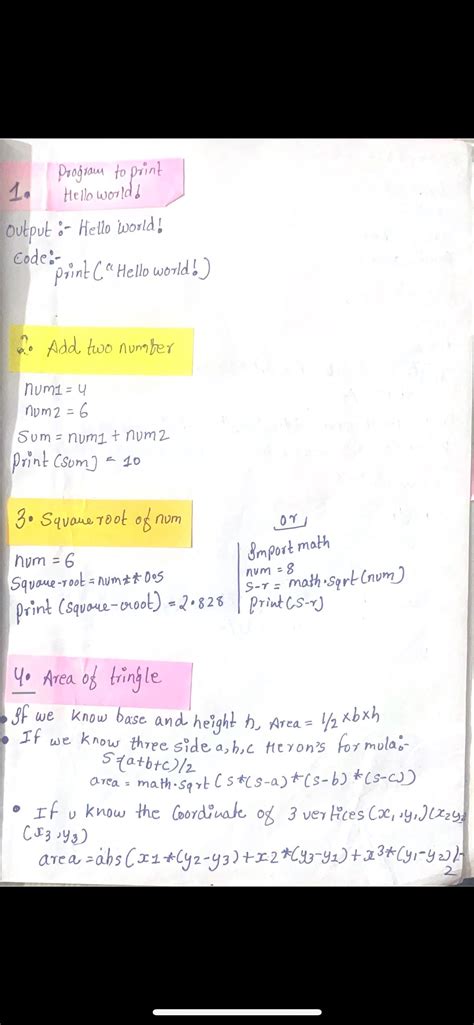 1. Program to print
Hello world!
Output :- Hello world!
Code:-
print("Hello world!)
2. Add two number
num1 = 4
num2 = 6
Sum = num1 + num2
Print (sum) = 10
3. Square root of num
num = 6
Square-root = num**0.5
print (square-root) = 2.828
or
Import math
num = 8
s-r = math.sqrt(num)
print(s-r)
4. Area of tringle
• If we know base and height h, Area = 1/2 xbxh
• If we know three side a,b,c Heron's formula:-
S=(a+b+c)/2
area = math.sqrt (s*(s-a)*(s-b)*(s-c))
• If u know the Coordinate of 3 vertices (x1,y1)(x2y2
(x3,y3)
area = abs(x1*(y2-y3)+x2*(y3-y1)+x3*(y1-y2)/
2